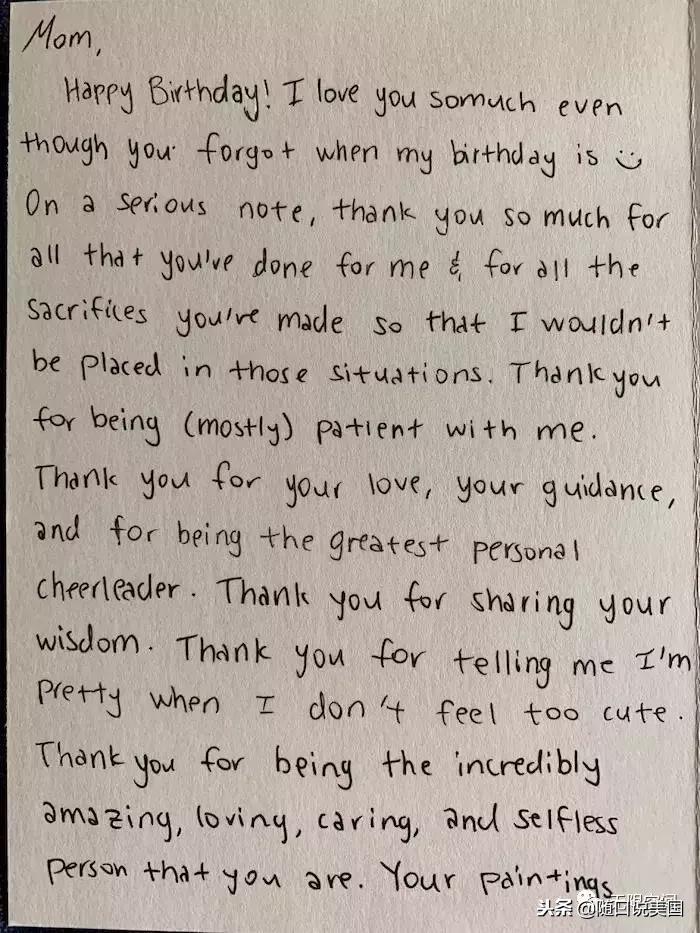 Mom,
Happy Birthday! I love you somuch even
though you forgot when my birthday is
On a serious note, thank you so much for
all that you've done for me & for all the
sacrifices you've made so that I wouldn't
be placed in those situations. Thank you
for being (mostly) patient with me.
Thank you for your love, your guidance,
and for being the greatest personal
cheerleader. Thank you for sharing your
wisdom. Thank you for telling me I'm
pretty when I don't feel too cute.
Thank you for being the incredibly
amazing, loving, caring, and selfless
person that you are. Your paintings
头条 @随日说美国